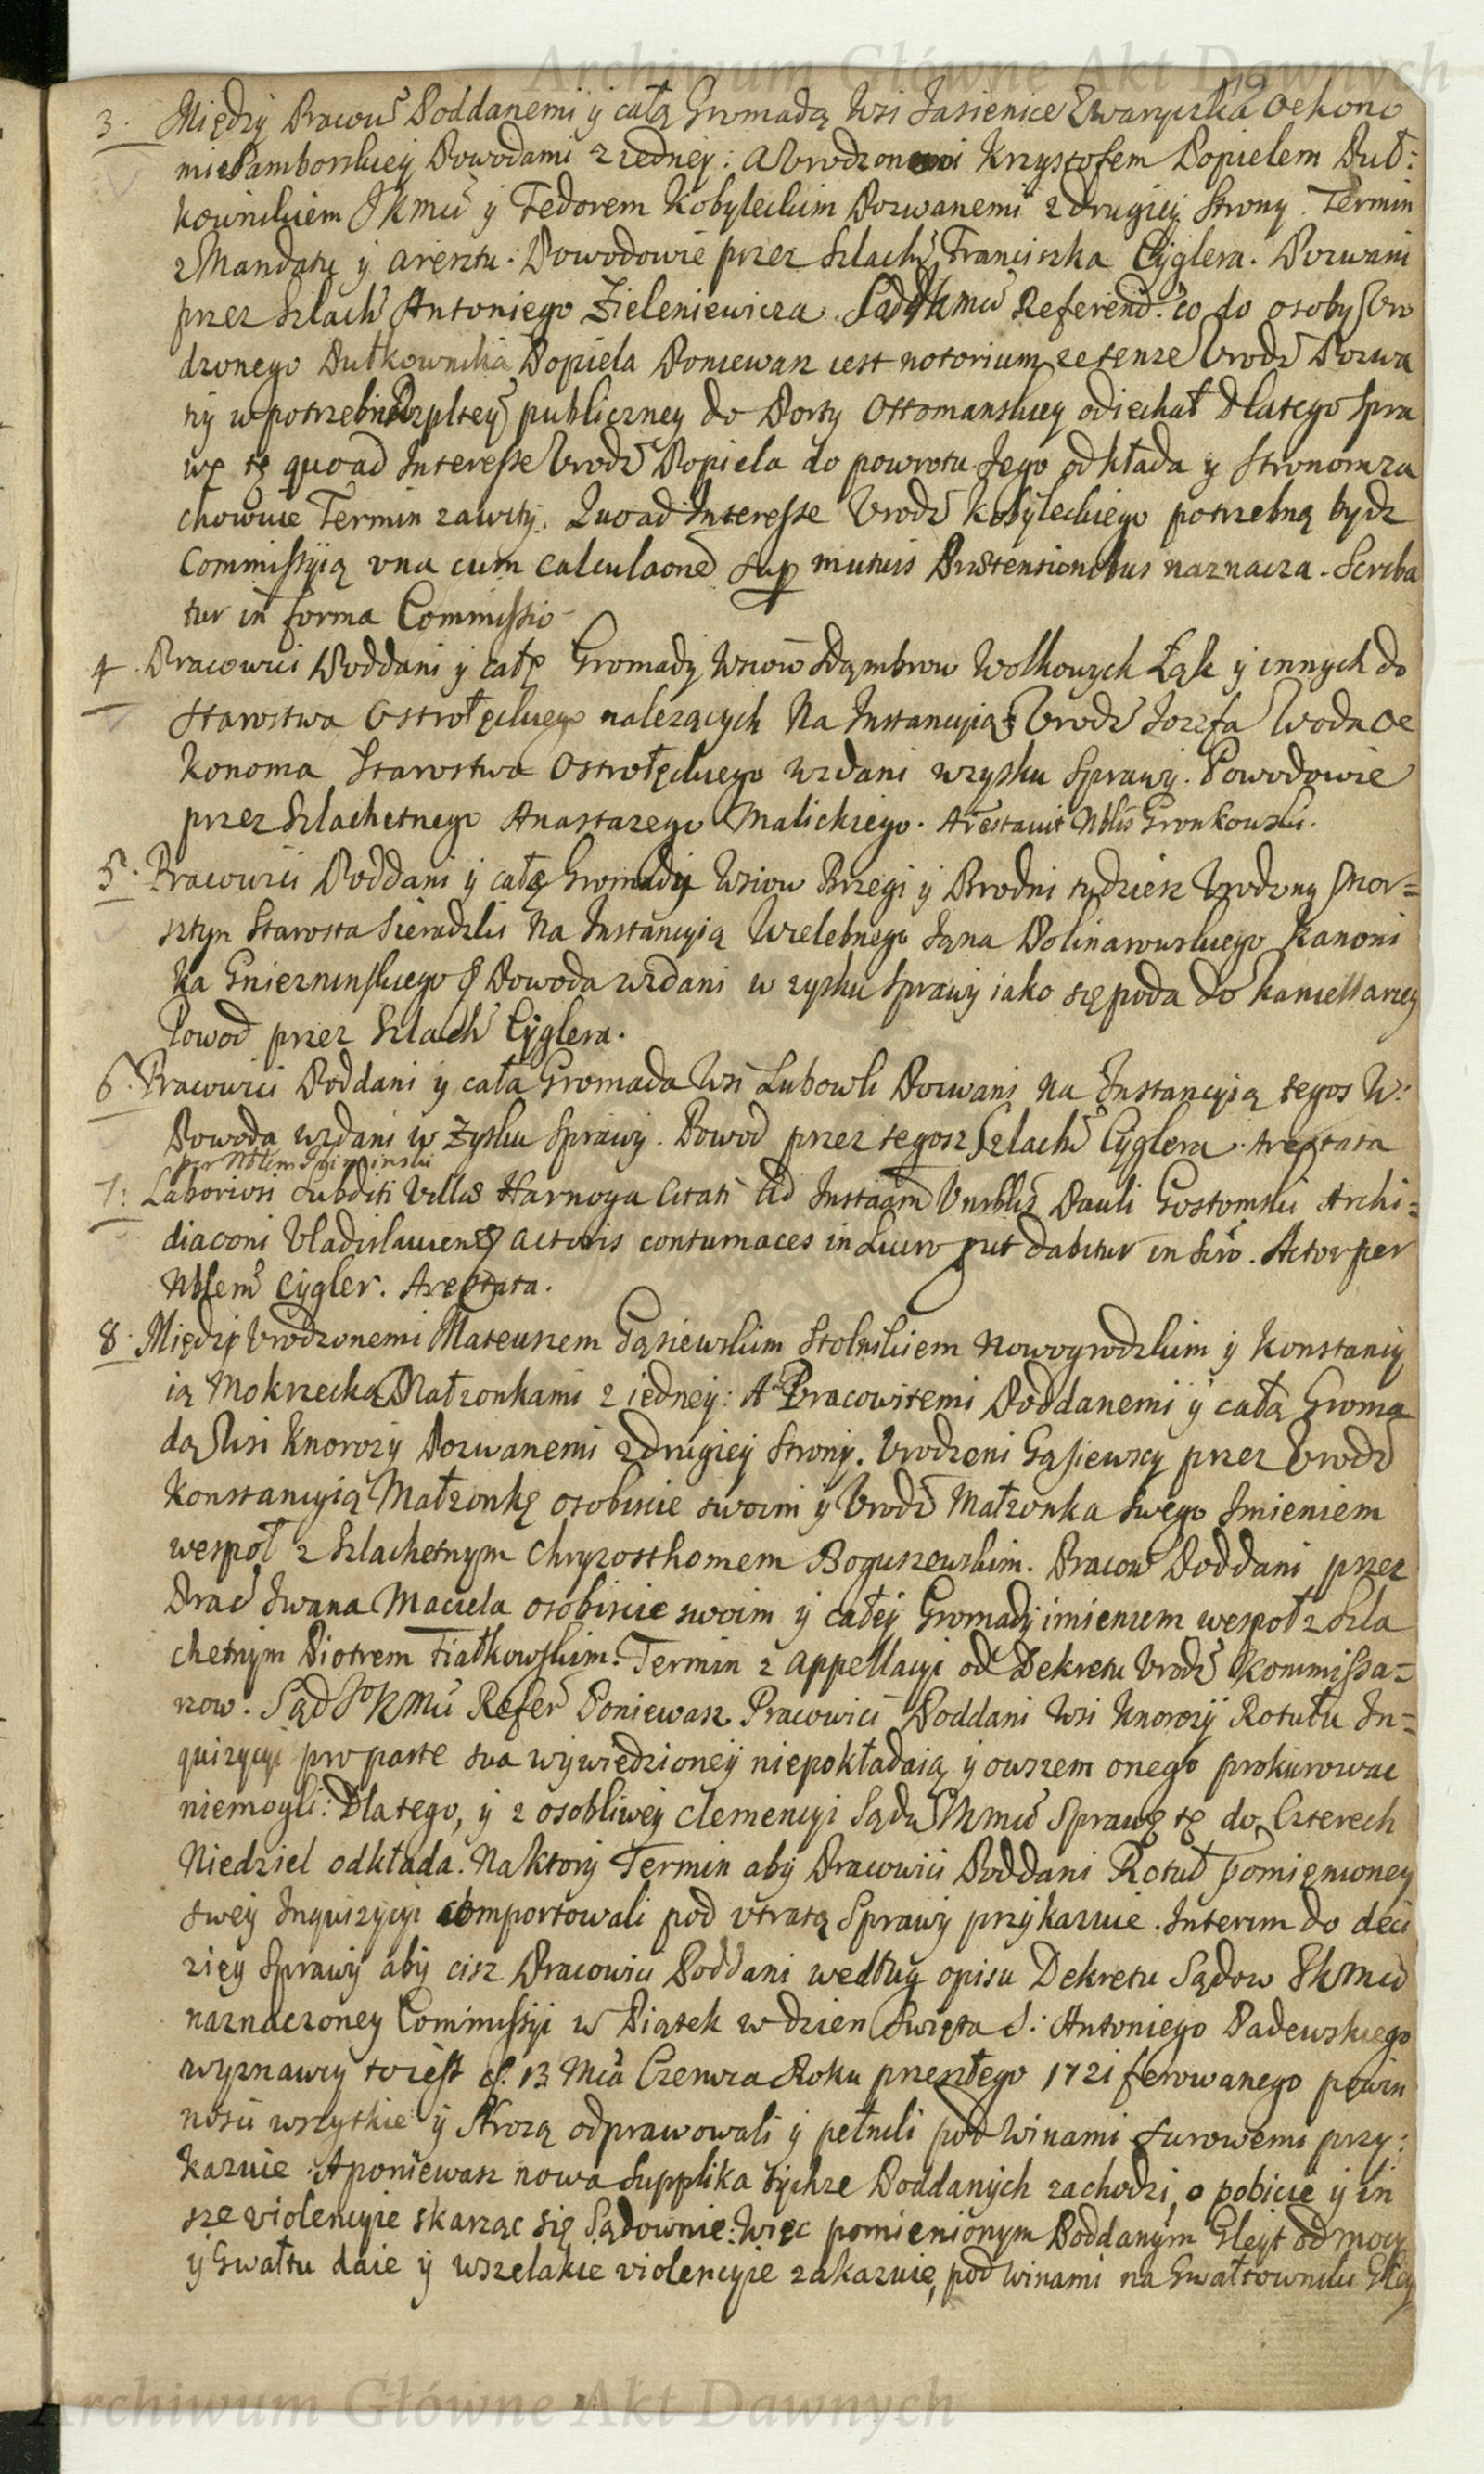 Archiwum Główne Akt Dawnych
3. Między Pracow Poddanemi y całą Gromadą Wsi Jasienice Zwaryczka Oekono
mie Samborskiey Powodami z iedney: A Vrodzonemi Krzysztofem Popielem Puł:
kownikiem JKMci y Fedorem Kobyleckim Pozwanemi z drugiey Strony. Termin
z Mandatu y aresztu: Powodowie przez Szlach Franciszka Cyglera. Pozwani
przez Szlach Antoniego Zieleniewicza. Sąd JKMci Referend. co do osoby Vro
dzonego Pułkownika Popiela Poniewasz iest notorium ze tenze Vrodz Pozwa
ny w potrzebie Rzpltey publiczney do Porty Ottomanskiey odiechał Dlatego Spra
wę tę quoad Interesse Vrodz Popiela do powrotu Jego odkłada y Stronom za
chowuie Termin zawity. Quoad Interesse Vrodz Kobyleckiego potrzebną bydz
Commissyią vna cum calculaone sup mutuis Prætensionibus naznacza. Scriba
tur in forma Commissio
4. Pracowici Poddani y całe Gromady Wsiow Dąmbrow Wolkowych Łąk y innych do
Starostwa Ostrołęckiego nalezących Na Instancyią Vrodz Jozefa Woda Oe
konoma Starostwa Ostrołęckiego wzdani w zysku Sprawy. Powodowie
przez Szlachetnego Anastazego Malickiego. Arestavit Nblis Gronkowski.
5. Pracowici Poddani y całą Gromady Wsiow Brzegi y Brodni tydziesz Vrodzony Mor=
sztyn Starosta Sieradzki Na Instancyią Wielebnego Jana Dolinawuskiego Kanoni
ka Gniezninskiego Powoda wzdani w zysku Sprawy iako się poda do kancellaryey
Powod przez Szlach Cyglera.
6. Pracowici Poddani y cała Gromada Wsi Lubowli Pozwani Na Instancyią tegos W:
Powoda wzdani w Zysku Sprawy. Powod przez tegosz Szlach Cyglera. Arestata
per Nblem
7. Laboriosi Subditi Villæ Harnoya Citati Ad Instaam Vnrblis Pauli Gostomski Archi=
diaconi Vladislavien actoris contumaces in Lucro put dabitur in Scro. Actor per
Nblem Cygler. Arestata.
8. Między Vrodzonemi Mateuszem Gąsiewskim Stolnikiem Nowogrodzkim y Konstancy
ią Mokrzecką Małzonkami z iedney: A Pracowitemi Poddanemi y całą Groma
dą Wsi Knorozy Pozwanemi z drugiey Strony. Vrodzeni Gąsiewscy przez Vrodz
Konstancyią Małzonkę osobiscie swoim y Vrodz Małzonka swego Imieniem
wespoł z Szlachetnym Chryzosthomem Boguszewskim. Pracow Poddani przez
Prac Iwana Maciela osobiscie swoim y całey Gromady imieniem wespoł z Szla
chetnym Piotrem Fiałkowskim. Termin z appellacyi od Dekretu Vrodz Kommissa=
rzow. Sąd JoKMci Refer Poniewasz Pracowici Poddani Wsi Knorozy Rotułu In=
quizycyi pro parte sua wywiedzioney niepokładaią y owszem onego prokurowac
niemogli: Dlatego, y z osobliwey clemencyi Sądu JKMci Sprawę tę do Czterech
Niedziel odkłada. Na ktory Termin aby Pracowici Poddani Rotuł pomienioney
swey Inquizycyi comportowali pod vtratą Sprawy przykazuie. Interim do deci
ziey Sprawy aby cisz Pracowici Poddani według opisu Dekretu Sądow JKMci
naznaczoney Commissyi w Piątek w dzien Swięta S: Antoniego Padewskiego
wyznawcy to iest d. 13 Mca Czerwca Roku przeszłego 1721 ferowanego powin
nosci wszytkie y Strozą odprawowali y pełnili pod winami surowemi przy:
kazuie. A poniewasz nowa Supplika tychze Poddanych zachodzi, o pobicie y in
sze violencyie skarząc się Sądownie: Więc pomienionym Poddanym Gleyt od mocy
y Gwałtu daie y wszelakie violencyie zakazuie, pod winami na Gwałtowniki Gley
Archiwum Główne Akt Dawnych